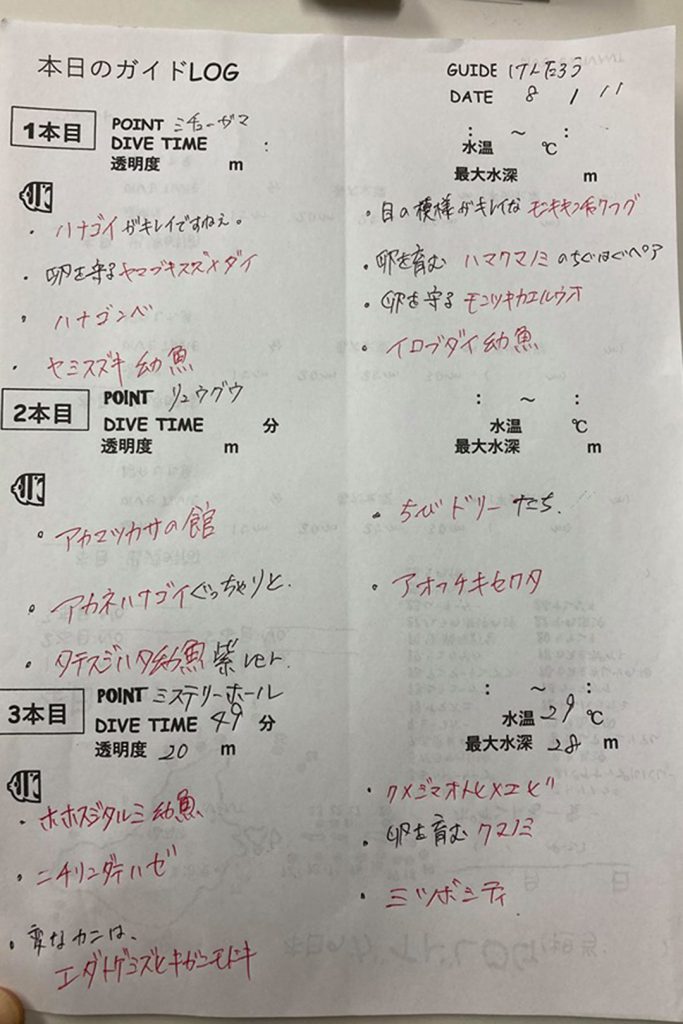 本日のガイドLOG
GUIDE けんたろう
DATE 8 / 11
1本目
POINT ミチューガマ
DIVE TIME :
透明度 m
: ~ :
水温 ℃
最大水深 m
・ハナゴイがキレイですねぇ。
・卵を守るヤマブキスズメダイ
・ハナゴンベ
・ヤミスズキ幼魚
・目の模様がキレイな
・卵を育む ハマクマノミのちぐはぐペア
・卵を守るモンツキカエルウオ
・イロブダイ幼魚
2本目
POINT リュウグウ
DIVE TIME 分
透明度 m
: ~ :
水温 ℃
最大水深 m
・アカマツカサの館
・アカネハナゴイぐっちゃりと.
・タテスジハタ幼魚 紫ver.
・ちびドリーたち.
・アオフチキセワタ
3本目
POINT ミステリーホール
DIVE TIME 49 分
透明度 20 m
: ~ :
水温 29 ℃
最大水深 28 m
・ホホスジタルミ幼魚
・ニチリンダテハゼ
・変なカニは、
エダトゲミズヒキガニモドキ
・クメジマオトヒメエビ
・卵を育む クマノミ
・ミツボシティ